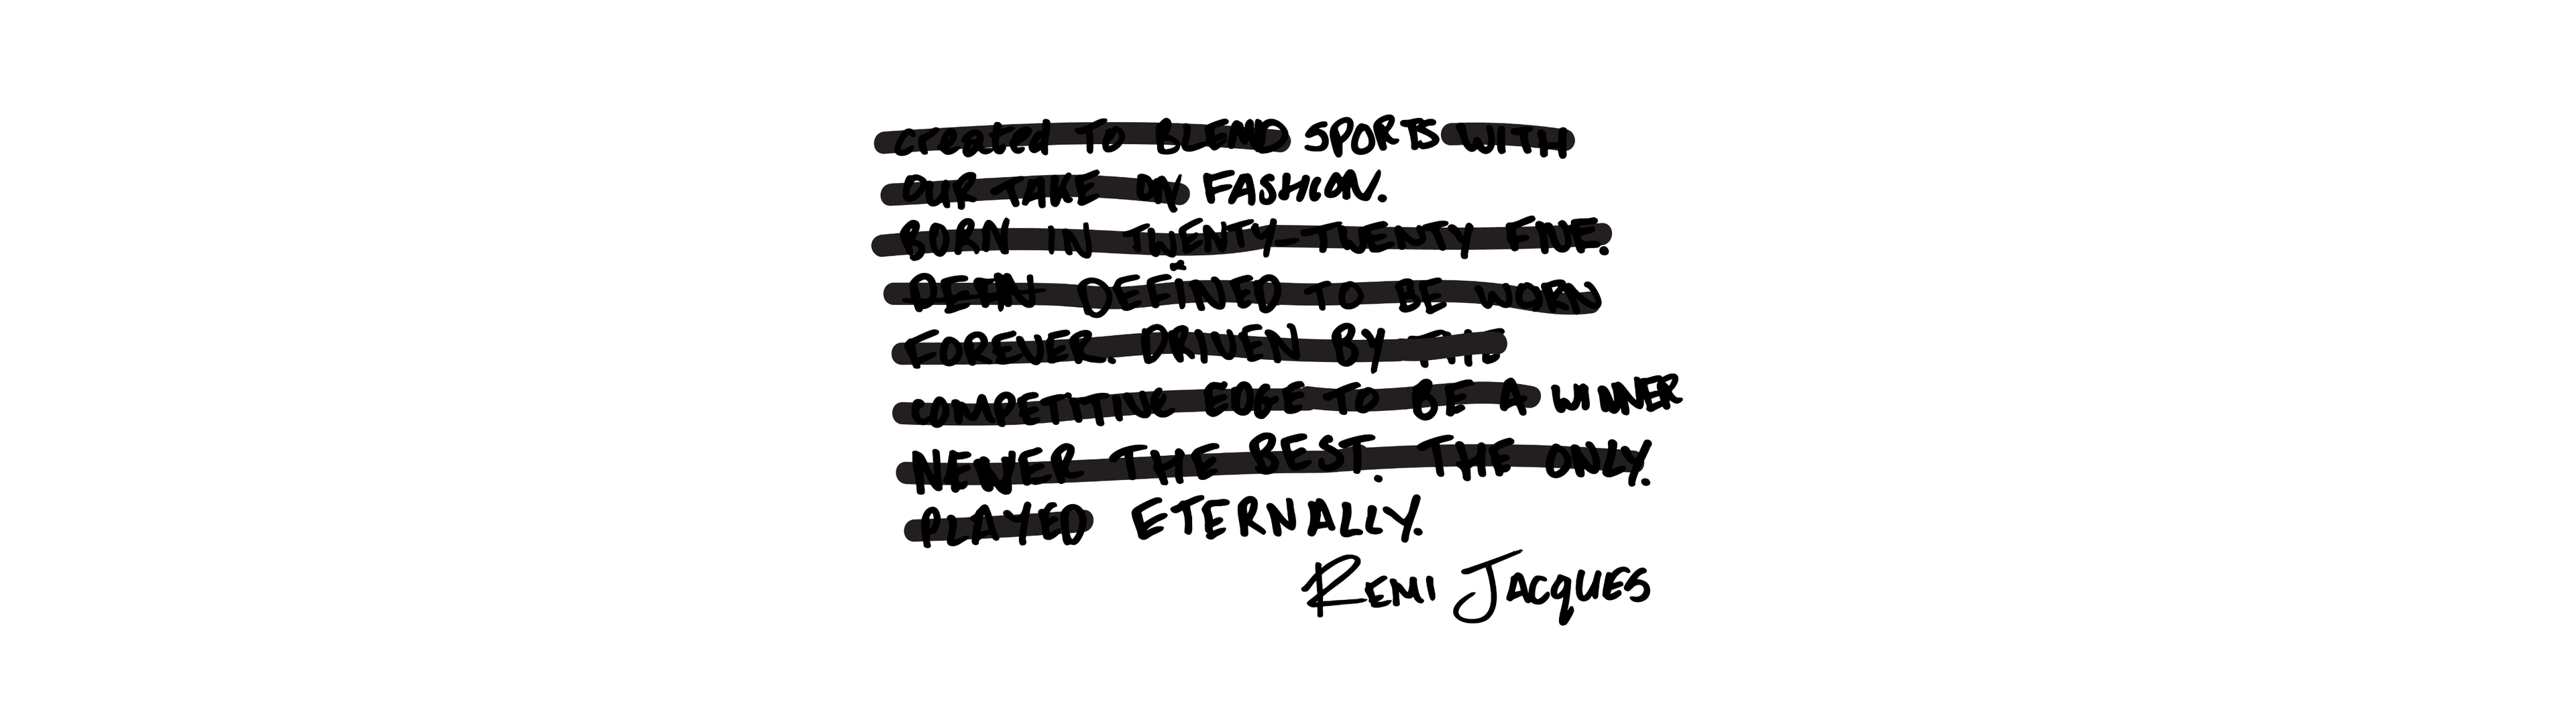 created TO BLEND SPORTS WITH
OUR TAKE ON FASHION.
BORN IN TWENTY-TWENTY FIVE.
DEFIN DEFINED TO BE WORN
FOREVER. DRIVEN BY THE
COMPETITIVE EDGE TO BE A WINNER
NEVER THE BEST. THE ONLY.
PLAYED ETERNALLY.
REMI JACQUES